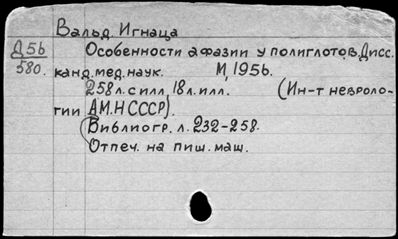 Вальд, Игнаца
Д56 Особенности афазии у полиглотов. Дисс.
580. канд. мед. наук. М, 1956.
258 л. с илл, 18 л. илл. (Ин-т невроло-
гии АМН СССР).
Библиогр. л. 232-258.
Отпеч. на пиш. маш.